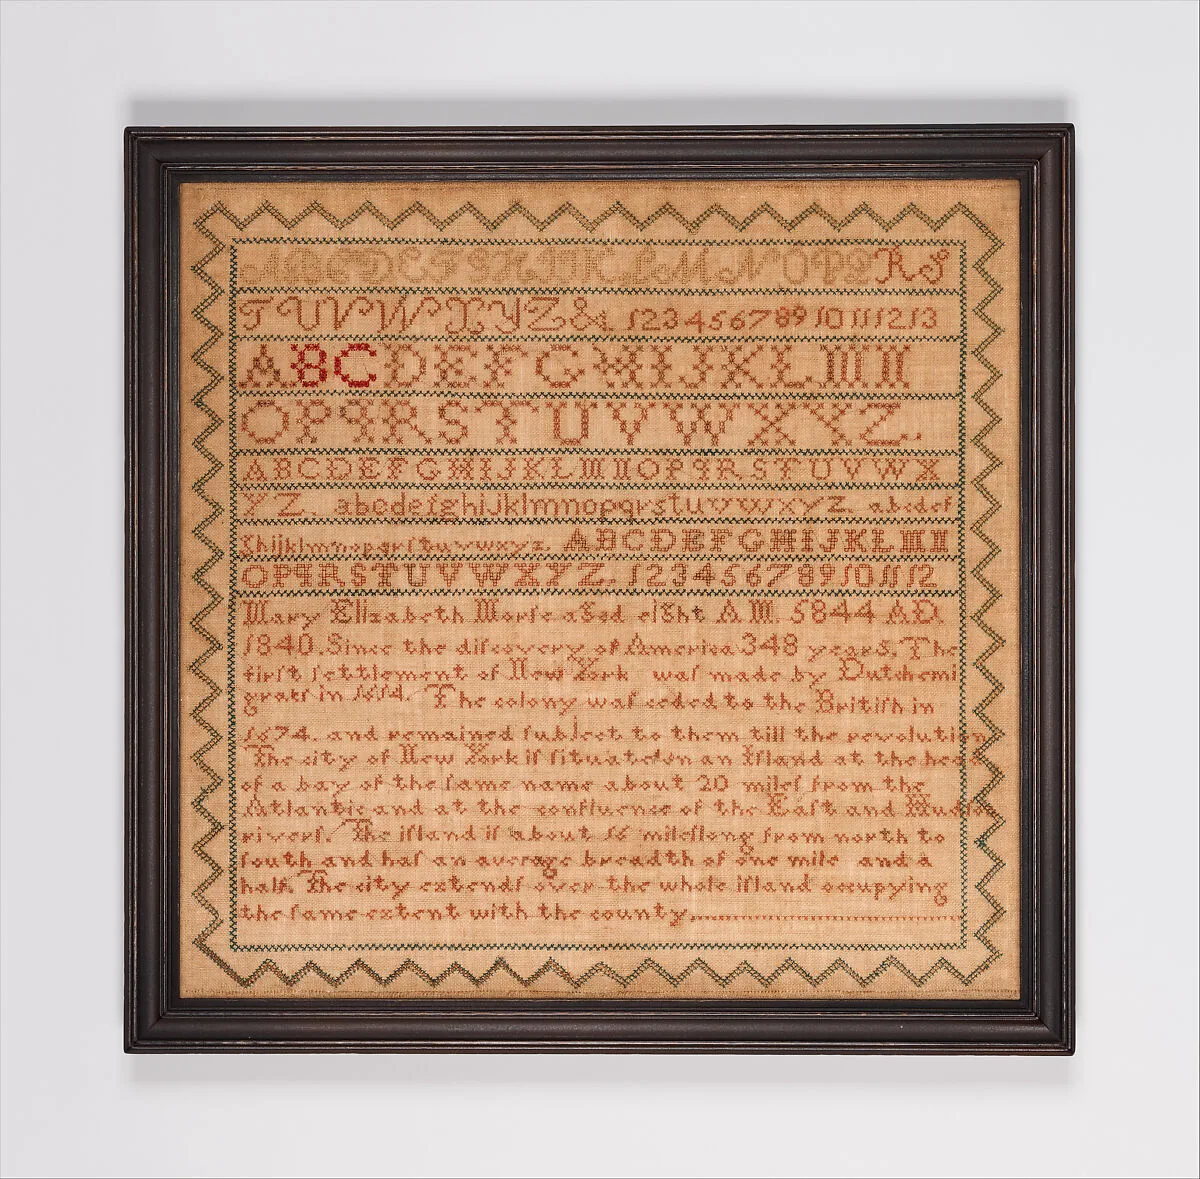 ABCDEFGHIJKLMNOPQRS
TUVWXYZ& 12345678910111213
ABCDEFGHIJKLMN
OPQRSTUVWXYZ.
ABCDEFGHIJKLMNOPQRSTUVWX
YZ. abcdefghijklmnopqrstuvwxyz. abcdef
ghijklmnopqrstuvwxyz. ABCDEFGHIJKLMN
OPQRSTUVWXYZ. 123456789101112
Mary Elizabeth Morſe aged eight A.M. 5844 AD.
1840. Since the diſcovery of America 348 years. The
firſt ſettlement of New York waſ made by Dutch emi
gratſ in 1614. The colony waſ ceded to the Britiſh in
1674. and remained ſubject to them till the revolution
The city of New York iſ ſituated on an Iſland at the head
of a bay of the ſame name about 20 mileſ from the
Atlantic and at the confluence of the Eaſt and Hudſon
riverſ. The iſland iſ about 16 mileſ long from north to
ſouth and haſ an average breadth of one mile and a
half. The city extendſ over the whole iſland occupying
the ſame extent with the county.